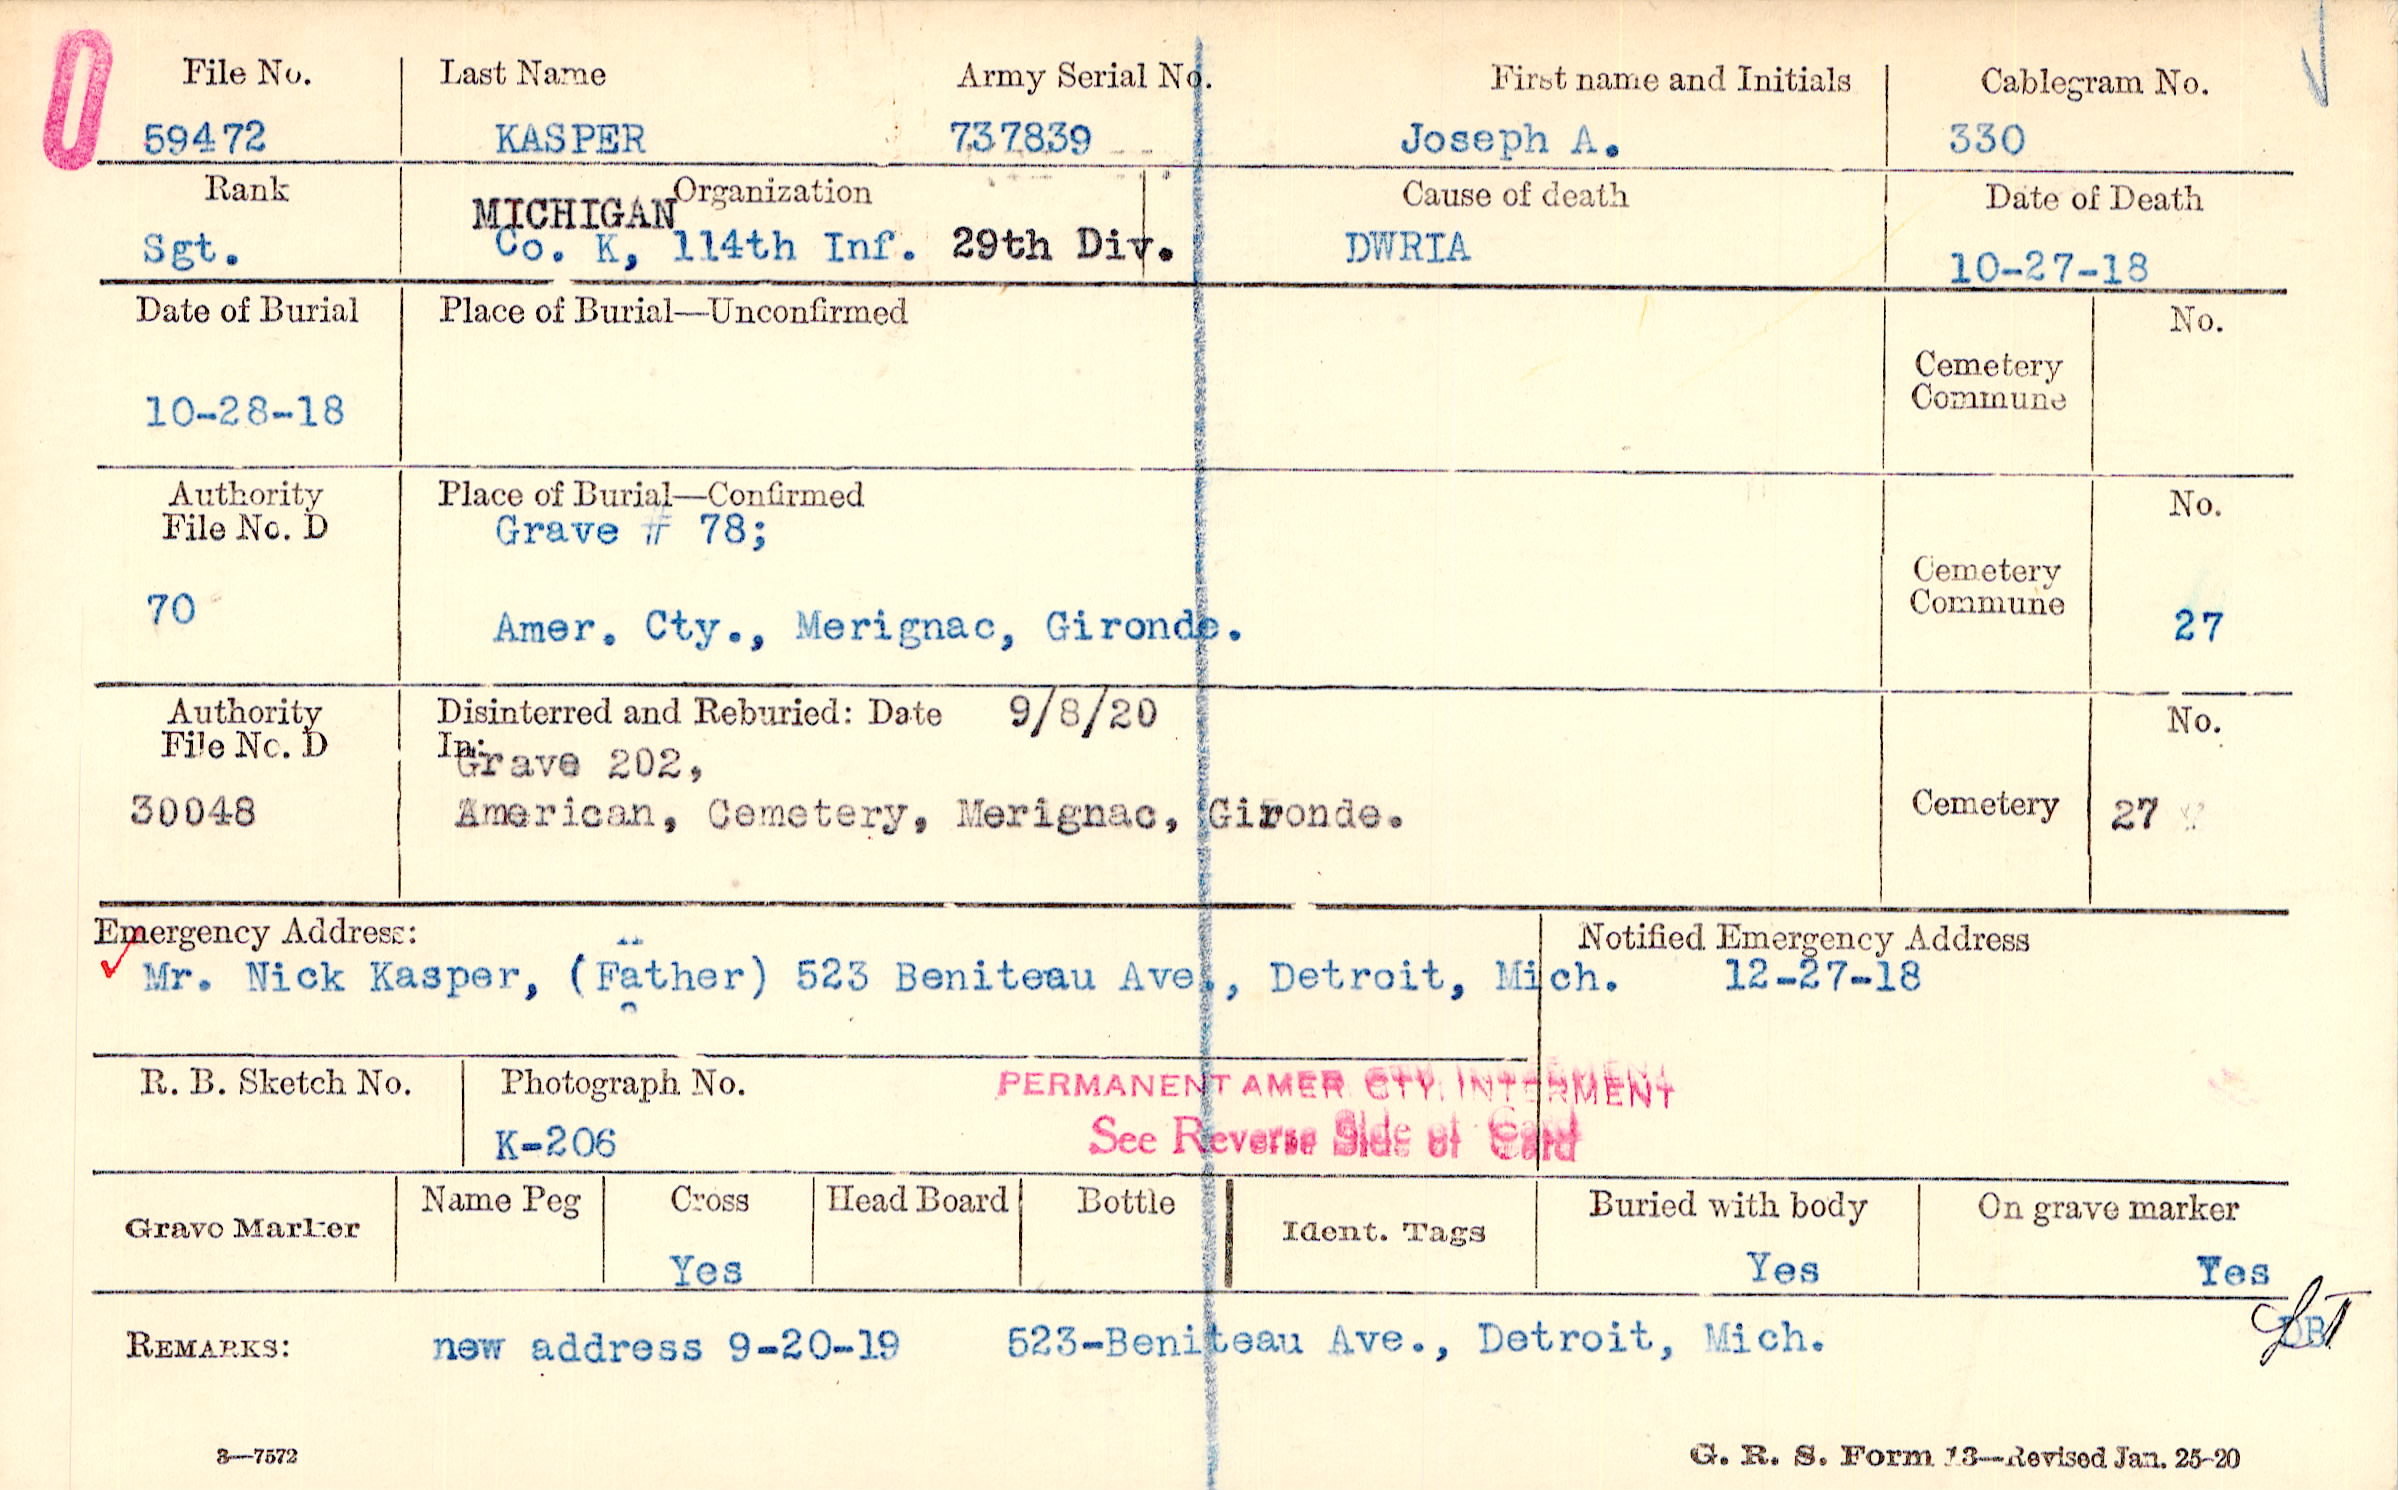 File No. Last Name Army Serial No. First name and Initials Cablegram No.
59472 KASPER 737839 Joseph A. 330
Rank Organization Cause of death Date of Death
MICHIGAN
Sgt. Co. K, 114th Inf. 29th Div. DWRIA 10-27-18
Date of Burial Place of Burial—Unconfirmed No.
Cemetery
Commune
10-28-18
Authority Place of Burial—Confirmed No.
File No. D Grave # 78;
Cemetery
Commune
70 Amer. Cty., Merignac, Gironde. 27
Authority Disinterred and Reburied: Date 9/8/20 No.
File No. D In:
Grave 202,
30048 American, Cemetery, Merignac, Gironde. Cemetery 27
Emergency Address: Notified Emergency Address
Mr. Nick Kasper, (Father) 523 Beniteau Ave., Detroit, Mich. 12-27-18
R. B. Sketch No. Photograph No. PERMANENT AMER CTY. INTERMENT
K-206 See Reverse Side of Card
Grave Marker Name Peg Cross Head Board Bottle Ident. Tags Buried with body On grave marker
Yes Yes Yes
REMARKS: new address 9-20-19 523-Beniteau Ave., Detroit, Mich.
3—7572 G. R. S. Form 13—Revised Jan. 25-20